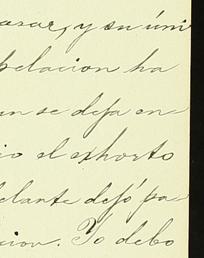 asar, y su úni
pelacion ha
un se deja en
io el exhorto
delante dejó pa
cion. Yo debo